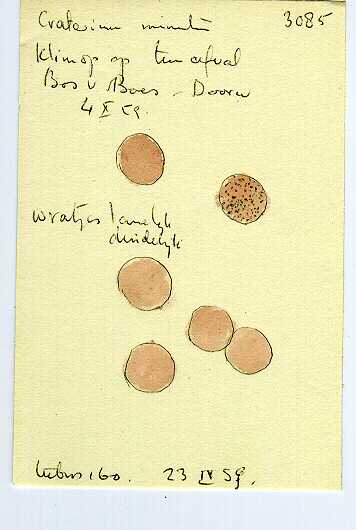 Craterium minuti
3085
Klimop op tuinafval
Bos v Boes - Doorn
4 X 59.
wratjes tamelijk
duidelijk
23 IV 59.